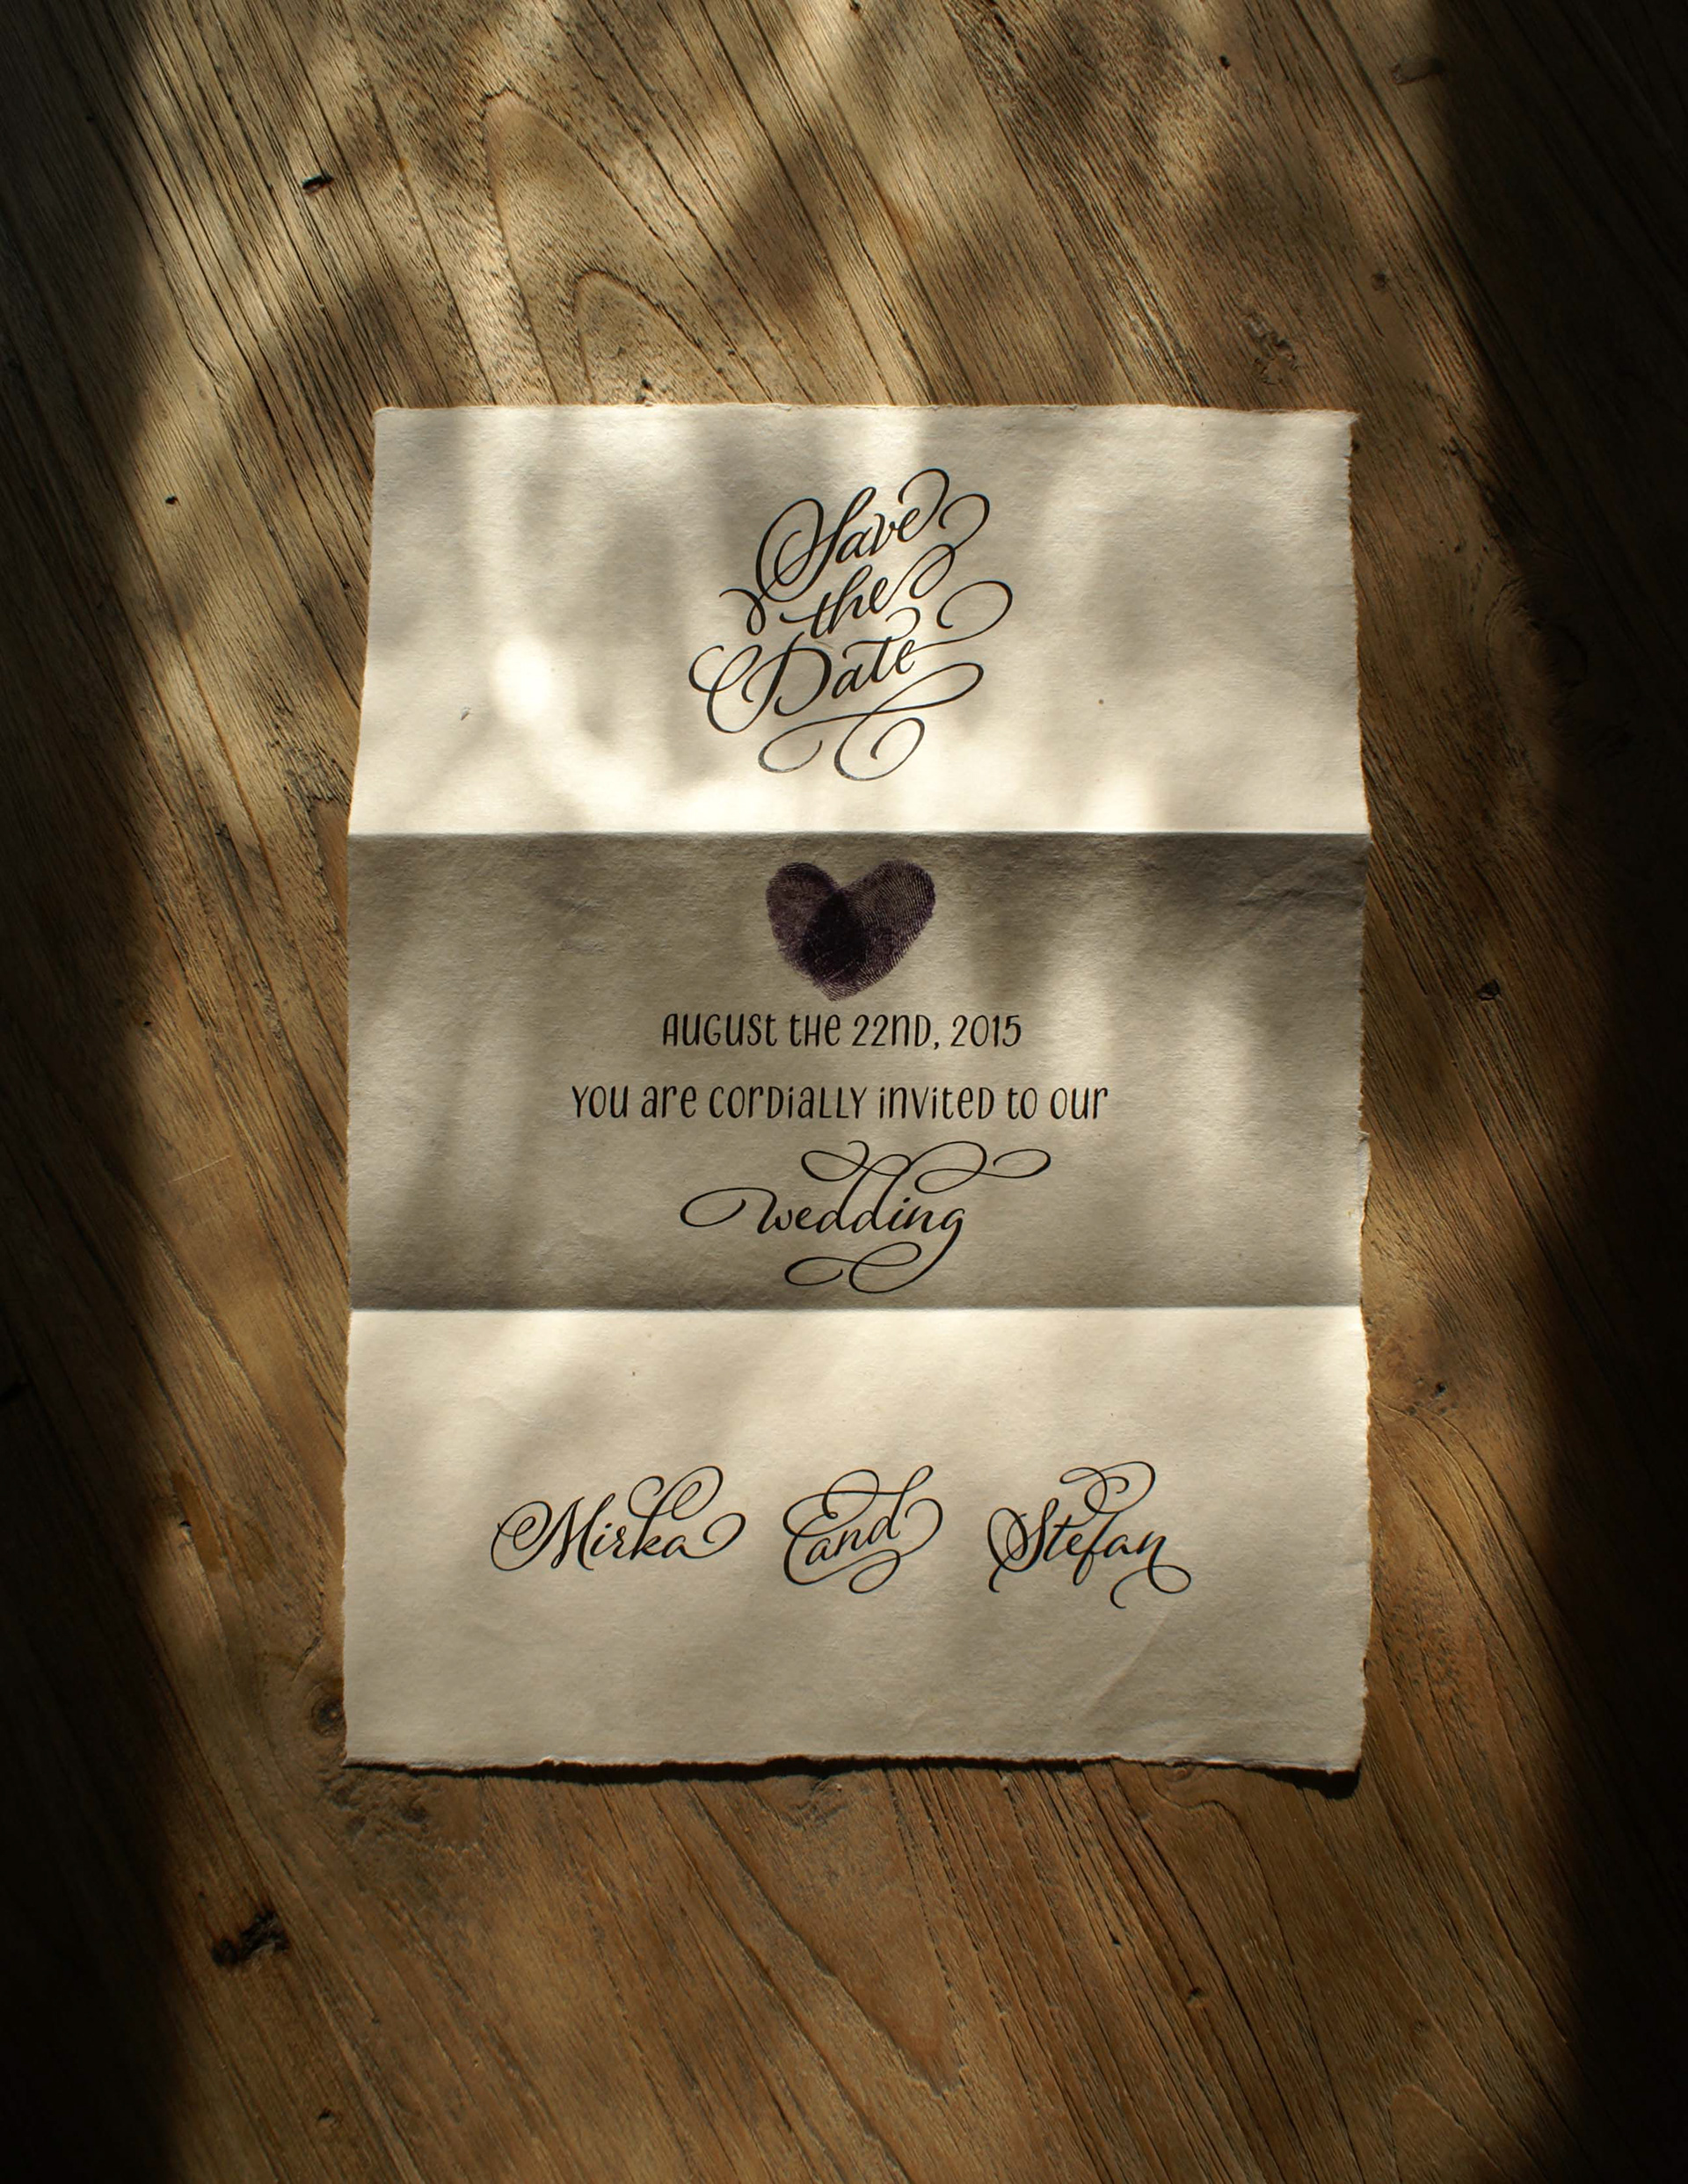 Save
the
Date
AUGUST THE 22ND, 2015
YOU ARE CORDIALLY INVITED TO OUR
wedding
Mirka and Stefan